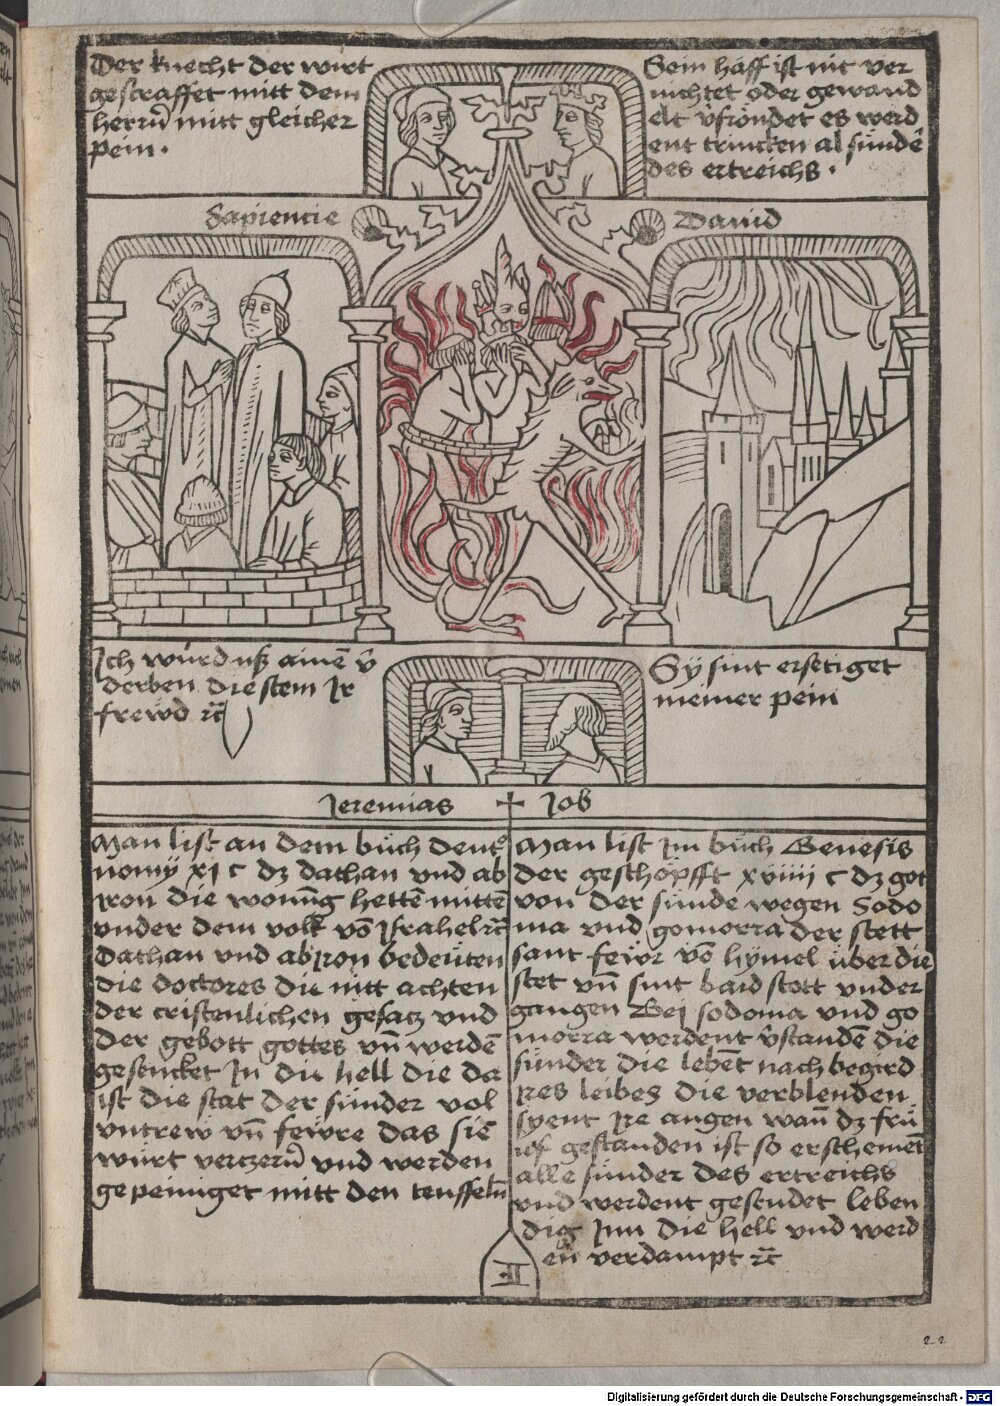 Der knecht der wirt
gestraffet mitt dem
herrn̄ mitt gleicher
pein ·
Sein häff ist nit ver
nichtet oder gewand
elt v̄frondet es werd
ent trincken al sünde᷑
des ertreichs ·
Sapiencie
Dauid
Ich würd uß ainē v̄
derben die stem Ir
frewd ⁊c̄
Sÿ sint ersetiget
meiner pein
Jeremias ✝ Job
Man list an dem bůch deut᷑
nomÿ xj c dz dathan vnd ab
iron die wonūg hettē mittē
vnder dem volk vō Israhel ⁊c̄
Dathan und abiron bedeüten
die doctores die nitt achten
der cristenlichen gesatz vnd
der gebott gottes vn̄ werdē
gestucket In die hell die da
ist die stat der sünder vol
vntrew vn̄ feẅre das sie
würt verczern̄ vnd werden
gepeiniget mitt den teuffeln̄
Man list Im bůch Genesis
der geschöpfft xviiij c dz got
von der sünde wegen Sodo
ma vnd gomorra der stett
sant feẅr vō hÿmel über die
stet vn̄ sint baid stott vnder
gangen Bei sodoma vnd go
morra werdent v̄standē die
sünder die lebēt nach begird
ires leibes die verblenden
syent ire augen wan̄ dz frü
gestanden ist so erscheinēt
alle sünder des ertreichs
vnd werdent gestudet leben
dig Inn die hell vnd werd
en̄ verdampt ⁊c̄
22
Digitalisierung gefördert durch die Deutsche Forschungsgemeinschaft - DFG